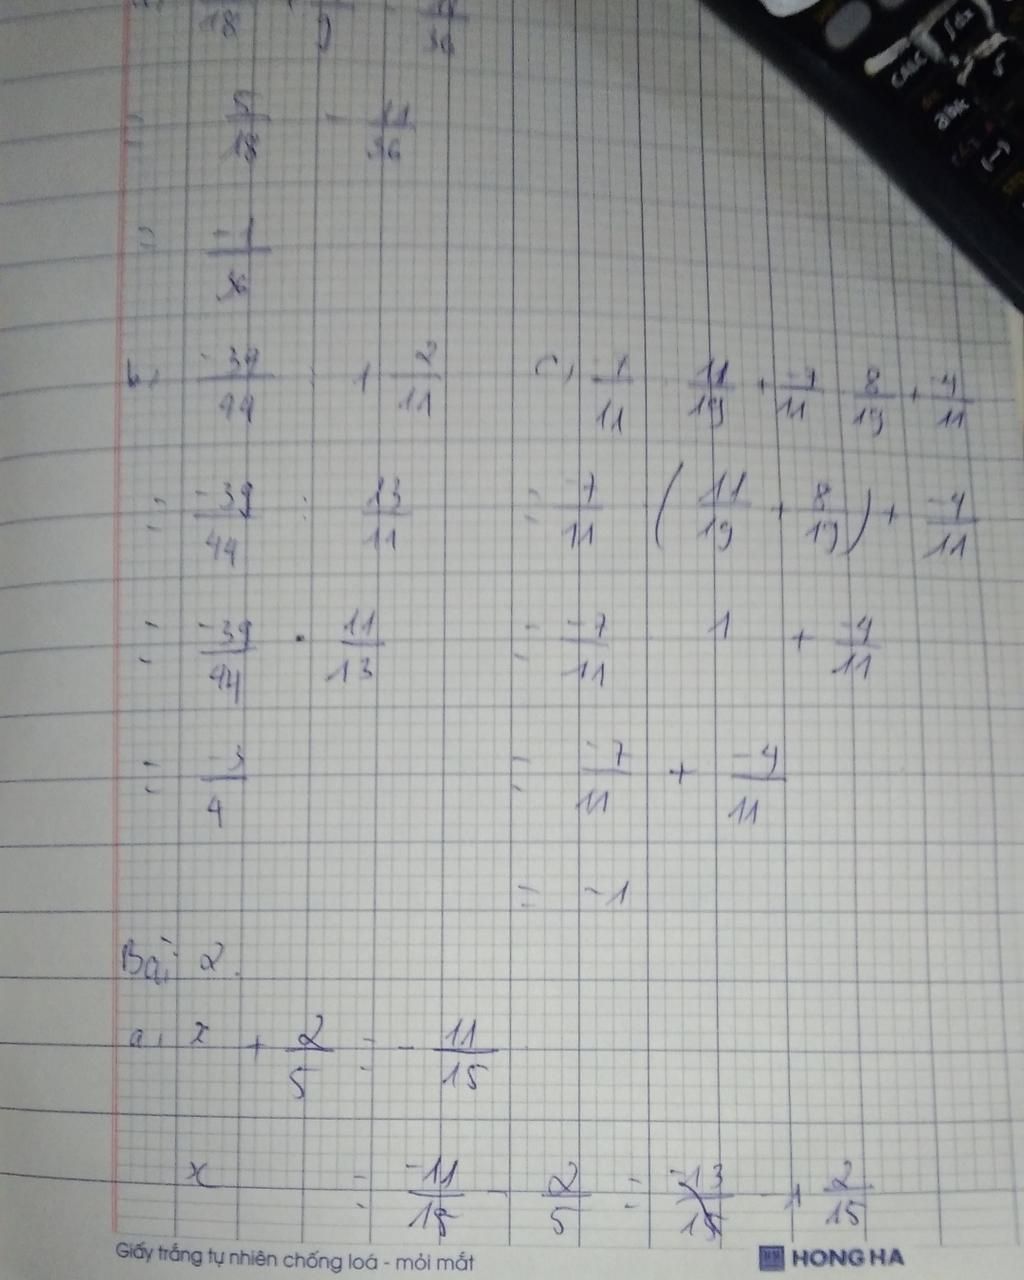 = 5/18 - 11/36
= -1/36
b, -39/44 : 1 2/11
= -39/44 : 13/11
= -39/44 . 11/13
= -3/4
c, -7/11 . 11/19 + -7/11 . 8/19 + -4/11
= -7/11 ( 11/19 + 8/19 ) + -4/11
= -7/11 1 + -4/11
= -7/11 + -4/11
= -1
Bài 2.
a, x + 2/5 = - 11/15
x = -11/15 - 2/5 = 2/15
Giấy trắng tự nhiên chống loá - mỏi mắt
HH HONG HA
CALC ∫dx